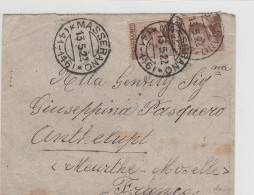 MASSERANO
13.5.22
Alla Gentil Sigᵐᵃ
Giuseppina Pasquero
Anthelupt
(Meurthe-Moselle)
France